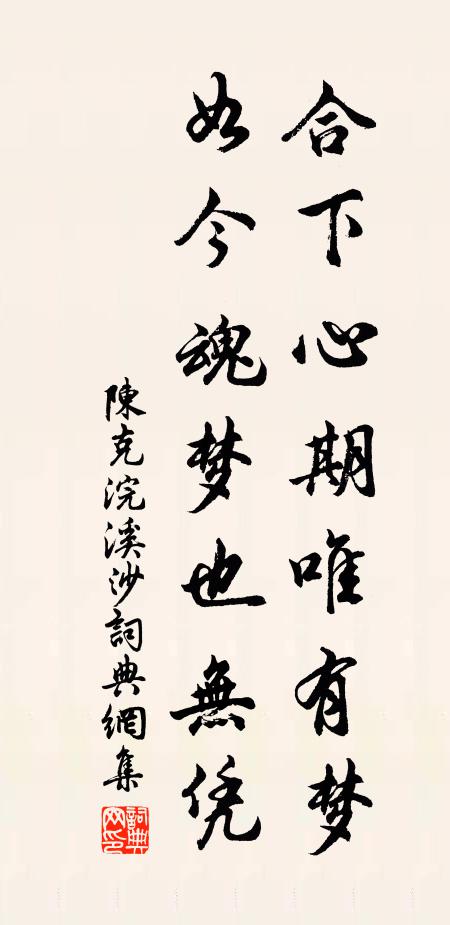 合下心期唯有梦
如今魂梦也無凭
陳克浣溪沙詞典網集
詞典网印